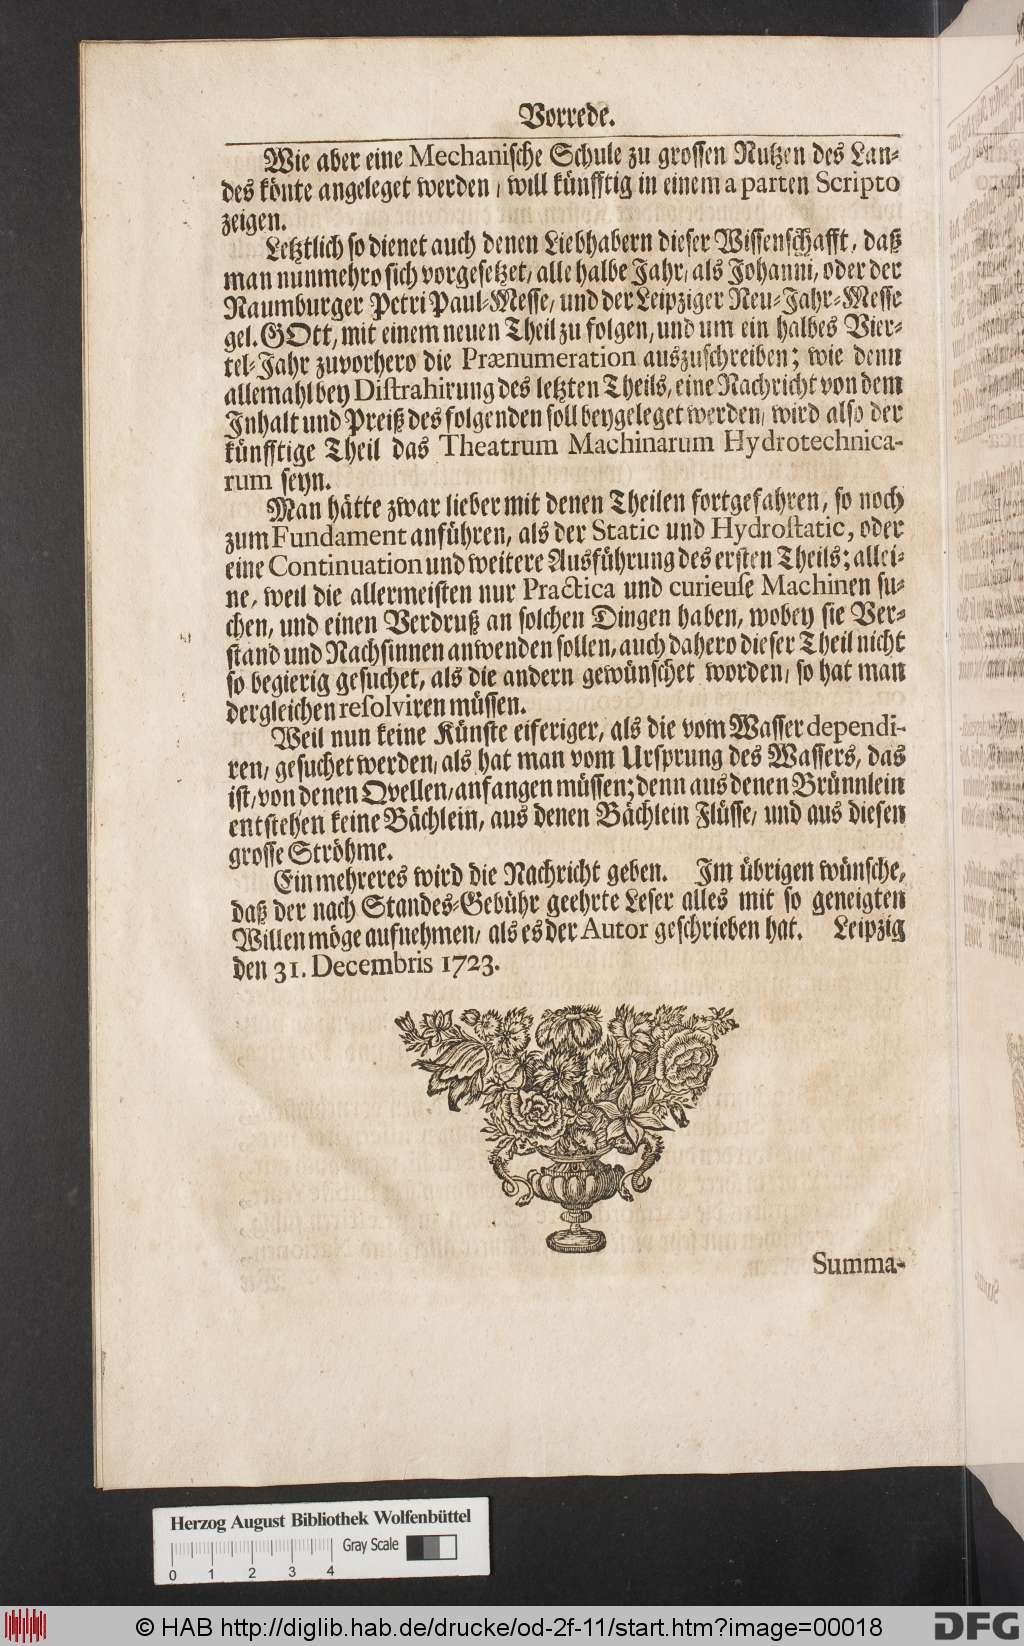 Vorrede.
Wie aber eine Mechanische Schule zu grossen Nutzen des Lan-
des könte angeleget werden, will künfftig in einem a parten Scripto
zeigen.
Letztlich so dienet auch denen Liebhabern dieser Wissenschafft, daß
man nunmehro sich vorgesetzet, alle halbe Jahr, als Johanni, oder der
Naumburger Petri Paul-Messe, und der Leipziger Neu-Jahr-Messe
gel. GOtt, mit einem neuen Theil zu folgen, und um ein halbes Vier-
tel-Jahr zuvorhero die Prænumeration auszuschreiben; wie denn
allemahl bey Distrahirung des letzten Theils, eine Nachricht von dem
Inhalt und Preiß des folgenden soll beygeleget werden, wird also der
künfftige Theil das Theatrum Machinarum Hydrotechnica-
rum seyn.
Man hätte zwar lieber mit denen Theilen fortgefahren, so noch
zum Fundament anführen, als der Static und Hydrostatic, oder
eine Continuation und weitere Ausführung des ersten Theils; allei-
ne, weil die allermeisten nur Practica und curieuse Machinen su-
chen, und einen Verdruß an solchen Dingen haben, wobey sie Ver-
stand und Nachsinnen anwenden sollen, auch dahero dieser Theil nicht
so begierig gesuchet, als die andern gewünschet worden, so hat man
dergleichen resolviren müssen.
Weil nun keine Künste eiferiger, als die vom Wasser dependi-
ren, gesuchet werden, als hat man vom Ursprung des Wassers, das
ist, von denen Qvellen, anfangen müssen; denn aus denen Brünnlein
entstehen keine Bächlein, aus denen Bächlein Flüsse, und aus diesen
grosse Ströhme.
Ein mehreres wird die Nachricht geben. Im übrigen wünsche,
daß der nach Standes-Gebühr geehrte Leser alles mit so geneigten
Willen möge aufnehmen, als es der Autor geschrieben hat. Leipzig
den 31. Decembris 1723.
Summa-
Herzog August Bibliothek Wolfenbüttel
Gray Scale
0 1 2 3 4
© HAB http://diglib.hab.de/drucke/od-2f-11/start.htm?image=00018
DFG